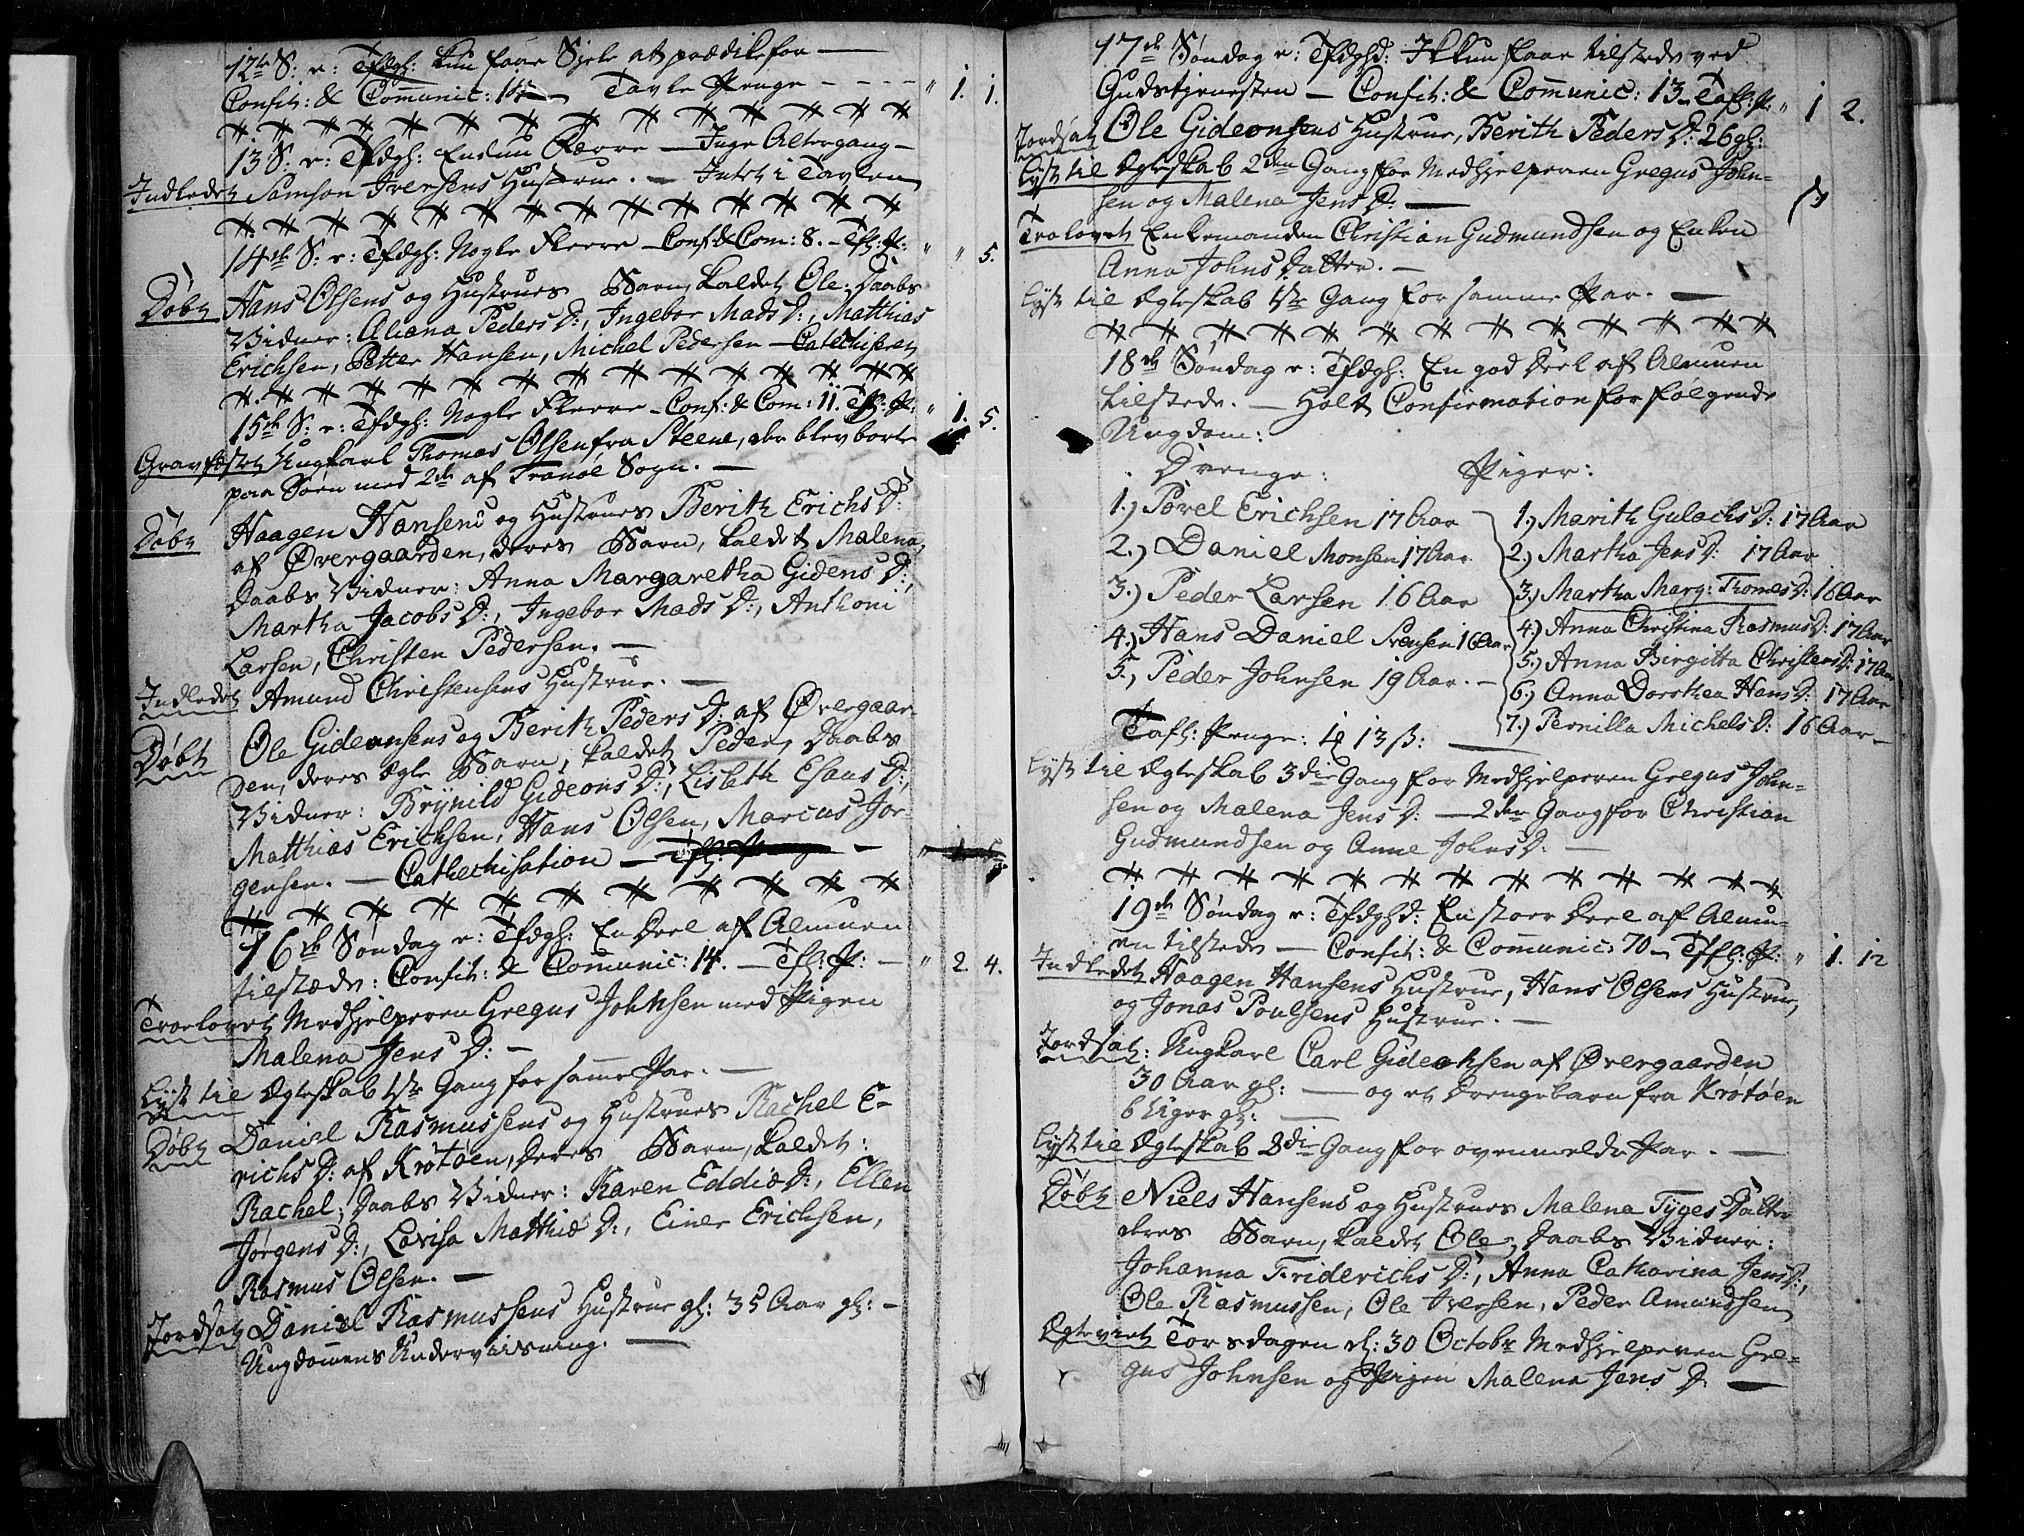 12te S: e: Tfdgh: kun faae Siele at prædike for —
Confit: & Com̄unic: 14 — Tavle Penge - - - - " 1. 1.
13 S: e: Tfdgh: Endnu Færre — Inge Altergang —
Indledet Samson Iversens Hustrue. — Intet i Tavlen
14de S: e: Tfdgh: Nogle Fleere — Conf: & Com: 8. — Tfl: P: " " 5.
Døbt Hans Olsens og Hustrues Barn, kaldet Ole; Daabs
Vidner: Aliæna Peders D:, Ingebor Mads D:, Matthias
Erichsen, Petter Hansen, Michel Pedersen — Catechiseret
15de S: e: Tfdgh: Nogle Fleere — Conf: & Com: 11. Tfl: P: " 1. 5.
Gravfæstet Ungkarl Thomas Olsen fra Steene, der blev borte
paa Søen med 2de af Tranøe Sogn. —
Døbt Haagen Hansens og Hustrues Berith Erichs D:
af Øvergaarden, deres Barn, kaldet Malena,
Daabs Vidner: Anna Margaretha Gidens D:,
Martha Jacobs D:, Ingebor Mads D:, Anthoni
Larsen, Christen Pedersen. —
Indledet Amund Christensens Hustrue. —
Døbt Ole Gideonsens og Berith Peders D: af Øvergaar-
den, deres Ægte Barn, kaldet Peder, Daabs
Vidner: Brÿnild Gideons D:, Lisbeth Esaus D:,
Matthias Erichsen, Hans Olsen, Marcus Jør-
gensen. — Cathechisation —
16de Søndag e: Tfdgh: En Deel af Almuen
tilstæde: Confit: & Com̄unic: 14. — Tfl: P: — " 2. 4.
Troelovet Medhjelperen Gregus Johnsen med Pigen
Malena Jens D: —
Lyst til Ægteskab 1ste Gang for sam̄e Par. —
Døbt Daniel Rasmussens og Hustrues Rachel E-
richs D: af Krøtøen, deres Barn, kaldet:
Rachel; Daabs Vidner: Karen Eddiæ D:, Ellen
Jørgens D:, Lovisa Matthiæ D:, Einer Erichsen,
Rasmus Olsen. —
Jordsat Daniel Rasmussens Hustrue gl: 35 Aar gl: —
Ungdom̄ens Underviisning. —
17de Søndag e: Tfdghd: Ikkun faae tilstede ved
Gudstjenesten — Confit: & Com̄unic: 13 — Tafl: P: " 1 2.
Jordsat Ole Gideonsens Hustrue, Berith Peders D: 26 gl:
Lyst til Ægteskab 2den Gang for Medhjelperen Gregus John-
sen og Malena Jens D: —
Trolovet Enkemanden Christian Gudmundsen og Enken
Anna Johns Datter. —
Lyst til Ægteskab 1ste Gang for samme Par. —
18de Søndag e: Tfdgh: En god Deel af Almuen
tilstede. — Holt Confirmation for følgende
Ungdom:
Drenge: Piger:
1.) Povel Erichsen 17 Aar 1.) Marith Gulachs D: 17 Aar
2.) Daniel Monsen 17 Aar 2.) Martha Jens D: 17 Aar
3.) Peder Larsen 16 Aar 3.) Martha Marg: Thomes D: 16 Aar
4.) Hans Daniel Svensen 16 Aar 4.) Anna Christina Rasmus D: 17 Aar
5.) Peder Johnsen 19 Aar. — 5.) Anna Birgitta Christens D: 17 Aar
6.) Anna Dorothea Hans D: 17 Aar
Tafl: Penge: 13 ß: — 7.) Pernilla Michels D: 16 Aar —
Lyst til Ægteskab 3die Gang for Medhjelperen Gregus John-
sen og Malena Jens D: — 2den Gang for Christian
Gudmundsen og Anne Johns D: —
19de Søndag e: Tfdghd: En stoer Deel af Almu-
en tilstede — Confit: & Com̄unic: 70 — Tfl: P: " 1. 12
Indledet Haagen Hansens Hustrue, Hans Olsens Hustrue,
og Jonas Poulsens Hustrue. —
Jordsat: Ungkarl Carl Gideonsen af Øvergaarden
30 Aar gl: — og et Drengebarn fra Krøtøen
6 Uger gl: —
Lyst til Ægteskab 3die Gang for ovenmeldte Par. —
Døbt Niels Hansens og Hustrues Malena Tyges Datter
deres Barn, kaldet Ole; Daabs Vidner:
Johanna Friderichs D:, Anna Catharina Jens D:,
Ole Rasmussen, Ole Iversen, Peder Amundsen
Ægteviet Torsdagen d: 30 Octobr Medhjelperen Gre-
gus Johnsen og Pigen Malena Jens D: —